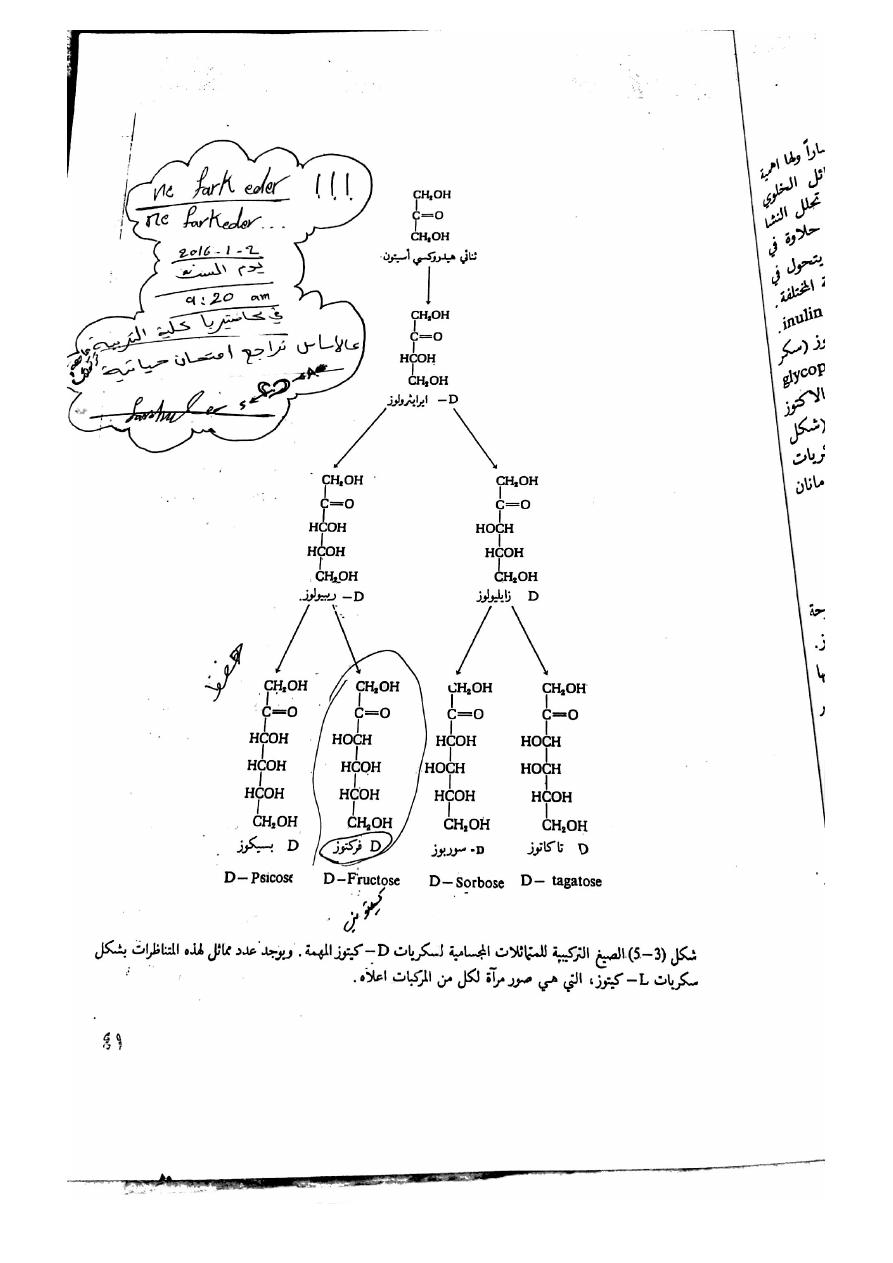 ne fark eder !!!
ne farkeder...
2016-1-2
يوم السبت
9:20 am
في كافتيريا كلية التربية
عالأساس نراجع امتحان حياتية
CH₂OH
C=O
CH₂OH
ثنائي هيدروكسي أسيتون
CH₂OH
C=O
HCOH
CH₂OH
D– ايرايثرولوز
CH₂OH
C=O
HCOH
HCOH
CH₂OH
D– ريبيولوز.
CH₂OH
C=O
HOCH
HCOH
CH₂OH
D زايليولوز
حفظ
CH₂OH
C=O
HCOH
HCOH
HCOH
CH₂OH
D بسيكوز
D–Psicose
CH₂OH
C=O
HOCH
HCOH
HCOH
CH₂OH
D فركتوز
D–Fructose
CH₂OH
C=O
HCOH
HOCH
HCOH
CH₂OH
D- سوربوز
D–Sorbose
CH₂OH
C=O
HOCH
HOCH
HCOH
CH₂OH
D تاكاتوز
D– tagatose
شكل (3–5) الصيغ التركيبية للمتماثلات المجسامية لسكريات D–كيتوز المهمة. ويوجد عدد مماثل لهذه المتناظرات بشكل
سكريات L–كيتوز، التي هي صور مرآة لكل من المركبات اعلاه.
ساراً ولها اهمية
ائل الخلوي
تحلل النشا
حلاوة في
يتحول في
ة المختلفة.
inulin.
وز (سكر
glycop
الاكتوز
(شكل
مانان